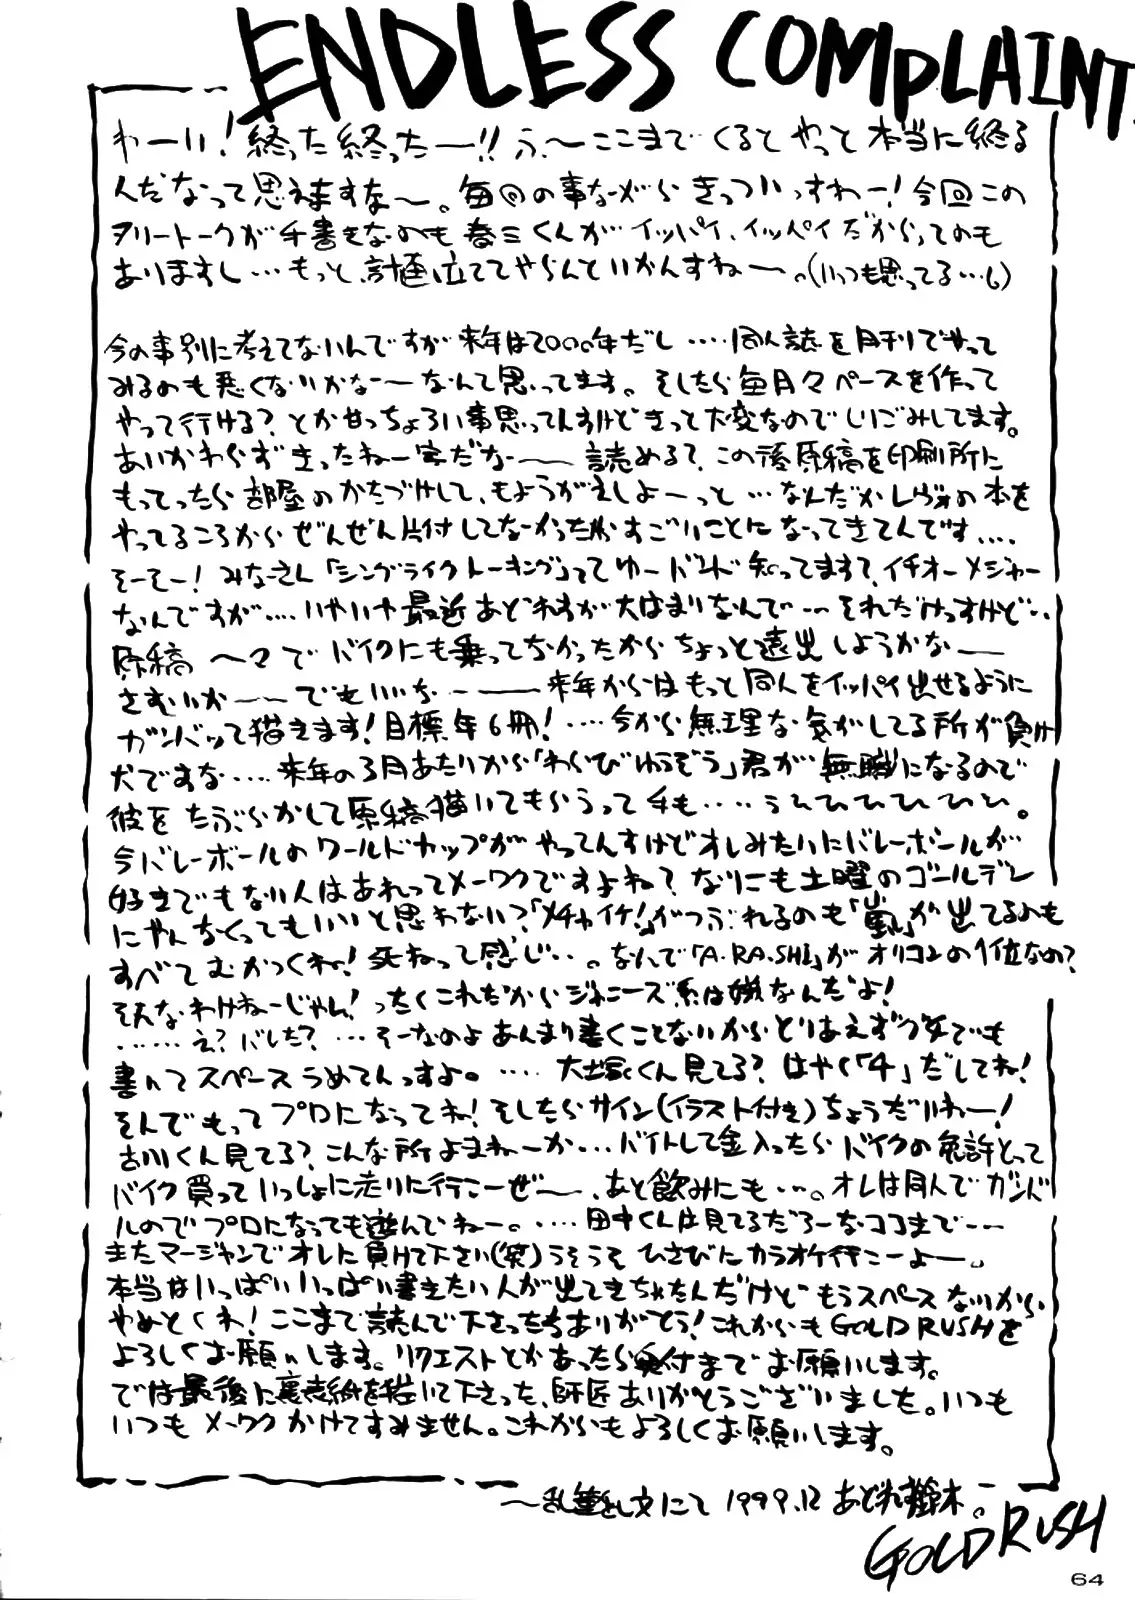 ENDLESS COMPLAINT.
わーい!終った終ったー!!ふ〜ここまでくるとやっと本当に終る
んだなって思えますな〜。毎回の事ながらきっついっすわー!今回この
フリートークが手書きなのも春三くんがイッパイ、イッパイだからってのも
ありますし…もっと、計画立ててやらんといかんすねー。(いつも思ってる…し)
今の事別に考えてないんですが来年は2000年だし……同人誌を月刊でやって
みるのも悪くないかなーなんて思ってます。そしたら毎月々ペースを作って
やって行ける?とか甘っちょろい事思ってんすけどきっと大変なのでしりごみしてます。
あいかわらずきったねー字だなー読める?この後原稿を印刷所に
もってったら部屋のかたづけして、もようがえしよーっと…なんだかレヴォの本を
やってるころからぜんぜん片付してなかったからすごいことになってきてんです....
そーそー!みなーさん「シングライクトーキング」ってゆーバンド知ってます?、イチオーメジャー
なんですが....いやいや最近あどれすが大はまりなんで…それだけっすけど…
原稿〜マでバイクにも乗ってなかったからちょっと遠出しようかなー
さむいかー〜でもいいなー来年からはもっと同人をイッパイ出せるように
ガンバッって描きます!目標年6冊!....今から無理な気がしてる所が負け
犬ですな....来年の3月あたりから「わらびゆうぞう」君が無職になるので
彼をたぶらかして原稿描いてもらうって手も....うひひひひひひ。
今バレーボールのワールドカップがやってんすけどオレみたいにバレーボールが
好きでもない人はあれってメーワクですよね?なりにも土曜のゴールデン
にやんなくてもいいと思わない?「メチャイケ!」がつぶれるのも「嵐」が出てるのも
すべてむかつくね!死ねって感じ…。なんで「A・RA・SHI」がオリコンの1位なの?
そんなわけねーじゃん!ったくこれだからジャニーズ系は嫌なんだよ!
……え?バレた?…そーなのよあんまり書くことないからとりあえずグチでも
書いてスペースうめてんっすよ。....大塚くん見てる?はやく「4」だしてね!
そんでもってプロになってね!そしたらサイン(イラスト付き)ちょうだいねー!
古川くん見てる?こんな所よまねーか…バイトして金入ったらバイクの免許とって
バイク買っていっしょに走りに行こーぜー、あと飲みにも…。オレは同人でガンバ
ルのでプロになっても遊んでねー。....田中くんは見てるだろーなココまで---
またマージャンでオレに負けて下さい(笑)うそうそひさびにカラオケ行こーよー。
本当はいっぱいいっぱい書きたい人が出てきちゃたんだけどもうスペースないから
やめとくね!ここまで読んで下さったちありがとう!これからもGOLD RUSHを
よろしくお願いします。リクエストとかあったら受付までお願いします。
では最後に裏表紙を描いて下さった、師匠ありがとうございました。いつも
いつもメーワクかけてすみません。これからもよろしくお願いします。
〜乱筆乱文にて 1999.12 あどれす鈴木。
GOLD RUSH
64